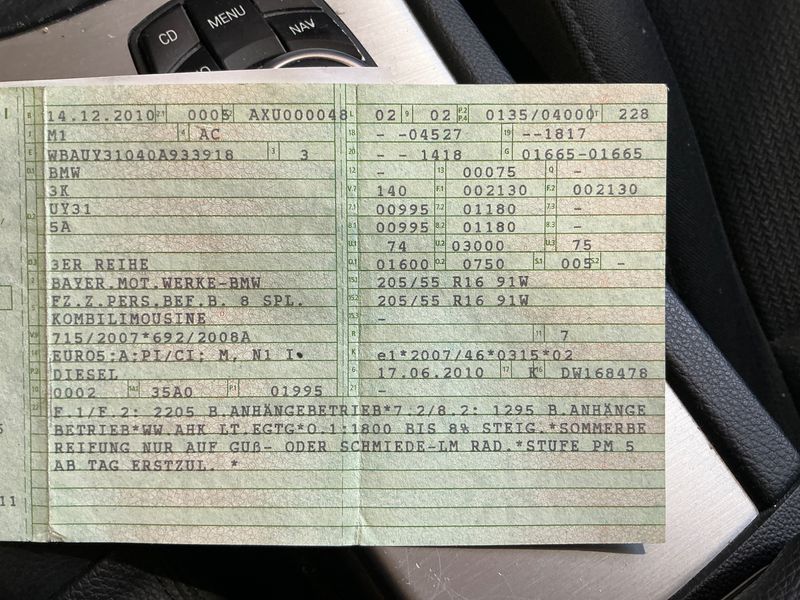 CD MENU NAV
B 14.12.2010 2.1 0005 2.2 AXU000048 L 02 9 02 P.2 P.4 0135/04000 T 228
J M1 4 AC 18 - -04527 19 --1817
E WBAUY31040A933918 3 3 20 - - 1418 G 01665-01665
D.1 BMW 12 - 13 00075 Q -
3K V.7 140 F.1 002130 F.2 002130
D.2 UY31 7.1 00995 7.2 01180 7.3 -
5A 8.1 00995 8.2 01180 8.3 -
U.1 74 U.2 03000 U.3 75
D.3 3ER REIHE O.1 01600 O.2 0750 S.1 005 S.2 -
2 BAYER.MOT.WERKE-BMW 15.1 205/55 R16 91W
5 FZ.Z.PERS.BEF.B. 8 SPL. 15.2 205/55 R16 91W
KOMBILIMOUSINE 15.3 -
V.9 715/2007*692/2008A R 11 7
14 EURO5;A;PI/CI; M, N1 I K e1*2007/46*0315*02
P.3 DIESEL 6 17.06.2010 17 K 16 DW168478
10 0002 14.1 35A0 P.1 01995 21 -
22 F.1/F.2: 2205 B.ANHÄNGEBETRIEB*7.2/8.2: 1295 B.ANHÄNGE
BETRIEB*WW.AHK LT.EGTG*O.1:1800 BIS 8% STEIG.*SOMMERBE
REIFUNG NUR AUF GUß- ODER SCHMIEDE-LM RAD.*STUFE PM 5
AB TAG ERSTZUL. *
11